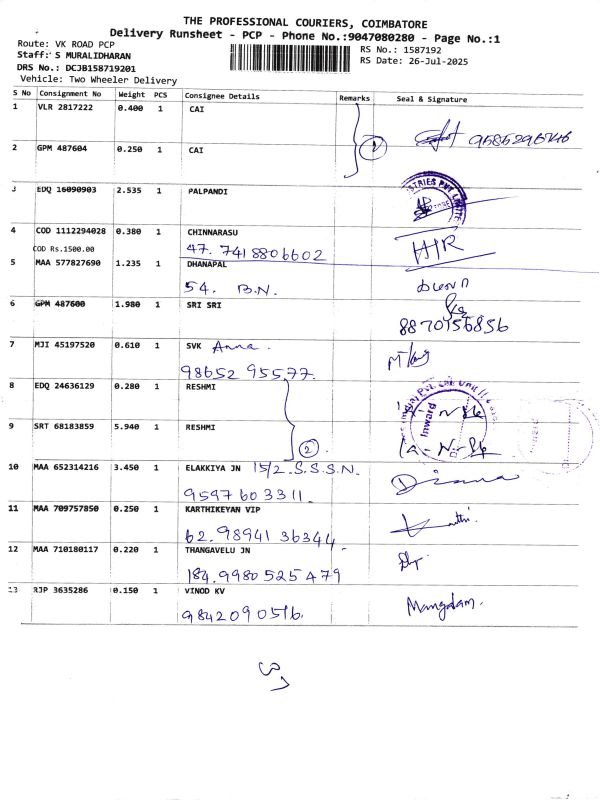 THE PROFESSIONAL COURIERS, COIMBATORE
Delivery Runsheet - PCP - Phone No.:9047080280 - Page No.:1
Route: VK ROAD PCP
RS No.: 1587192
Staff: S MURALIDHARAN
RS Date: 26-Jul-2025
DRS No.: DCJB158719201
Vehicle: Two Wheeler Delivery
S No Consignment No Weight PCS Consignee Details Remarks Seal & Signature
1 VLR 2817222 0.400 1 CAI
2 GPM 487604 0.250 1 CAI
2
3 EDQ 16090903 2.535 1 PALPANDI
STRIES PVT LIMITE
4 COD 1112294028 0.380 1 CHINNARASU
COD Rs.1500.00 47. 7418806602
5 MAA 577827690 1.235 1 DHANAPAL
54. B.N.
6 GPM 487600 1.980 1 SRI SRI
8870156856
7 MJI 45197520 0.610 1 SVK Anna.
98652 95577.
8 EDQ 24636129 0.280 1 RESHMI
Inward
9 SRT 68183859 5.940 1 RESHMI
2
10 MAA 652314216 3.450 1 ELAKKIYA JN 15/2.S.S.S.N.
9597603311.
11 MAA 709757850 0.250 1 KARTHIKEYAN VIP
62. 98941 36344.
12 MAA 710180117 0.220 1 THANGAVELU JN
184.9980525479
13 RJP 3635286 0.150 1 VINOD KV
9842090516.
Mangalam.